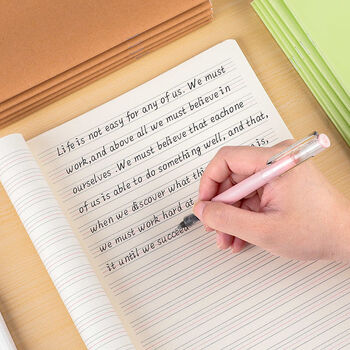 Life is not easy for any of us. We must
work, and above all we must believe in
ourselves. We must believe that eachone
of us is able to do something well, and that,
when we discover what this is,
we must work hard at
it until we succeed